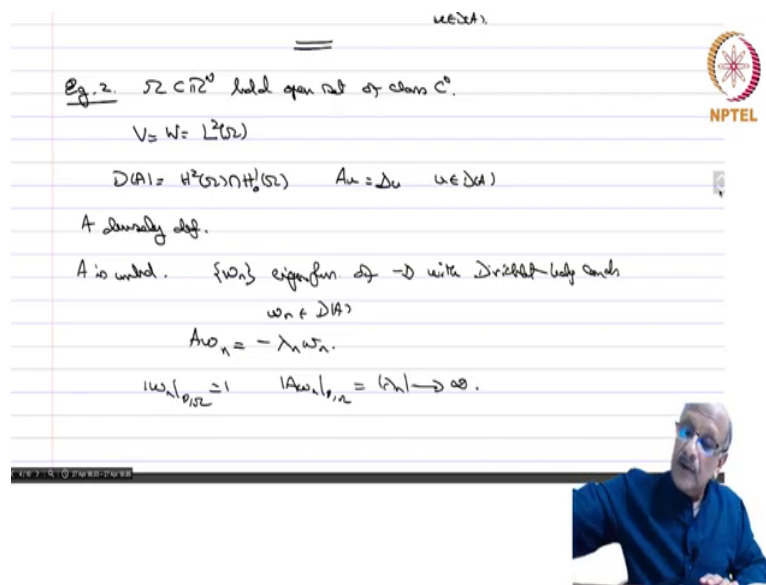 u∈D(A).
NPTEL
Eg. 2. Ω ⊂ ℝᴺ bdd open set of class C⁰.
V = W = L²(Ω)
D(A) = H²(Ω)∩H₀¹(Ω) Au = Δu u∈D(A)
A densely def.
A is unbdd. {wₙ} eigenfun. of -Δ with Dirichlet bdry conds
wₙ ∈ D(A)
Awₙ = - λₙwₙ.
|wₙ|₀,Ω = 1 |Awₙ|₀,Ω = |λₙ| → ∞.